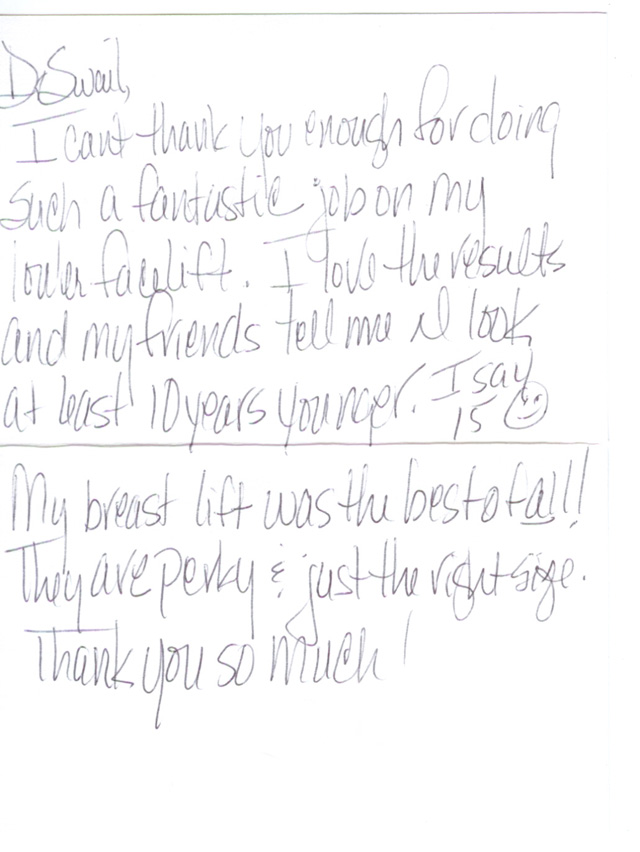 Dr Swail,
I can't thank you enough for doing
such a fantastic job on my
lower facelift. I love the results
and my friends tell me I look
at least 10 years younger. I say
15 ☺
My breast lift was the best of all!!
They are perky & just the right size.
Thank you so much!